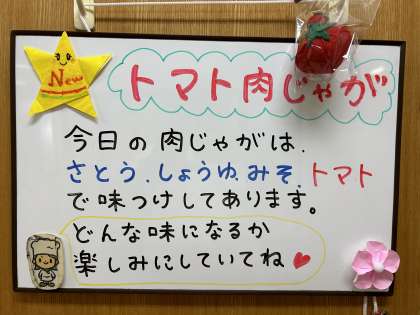 New
トマト肉じゃが
今日の肉じゃがは、
さとう、しょうゆ、みそ、トマト
で味つけしてあります。
どんな味になるか
楽しみにしていてね♥